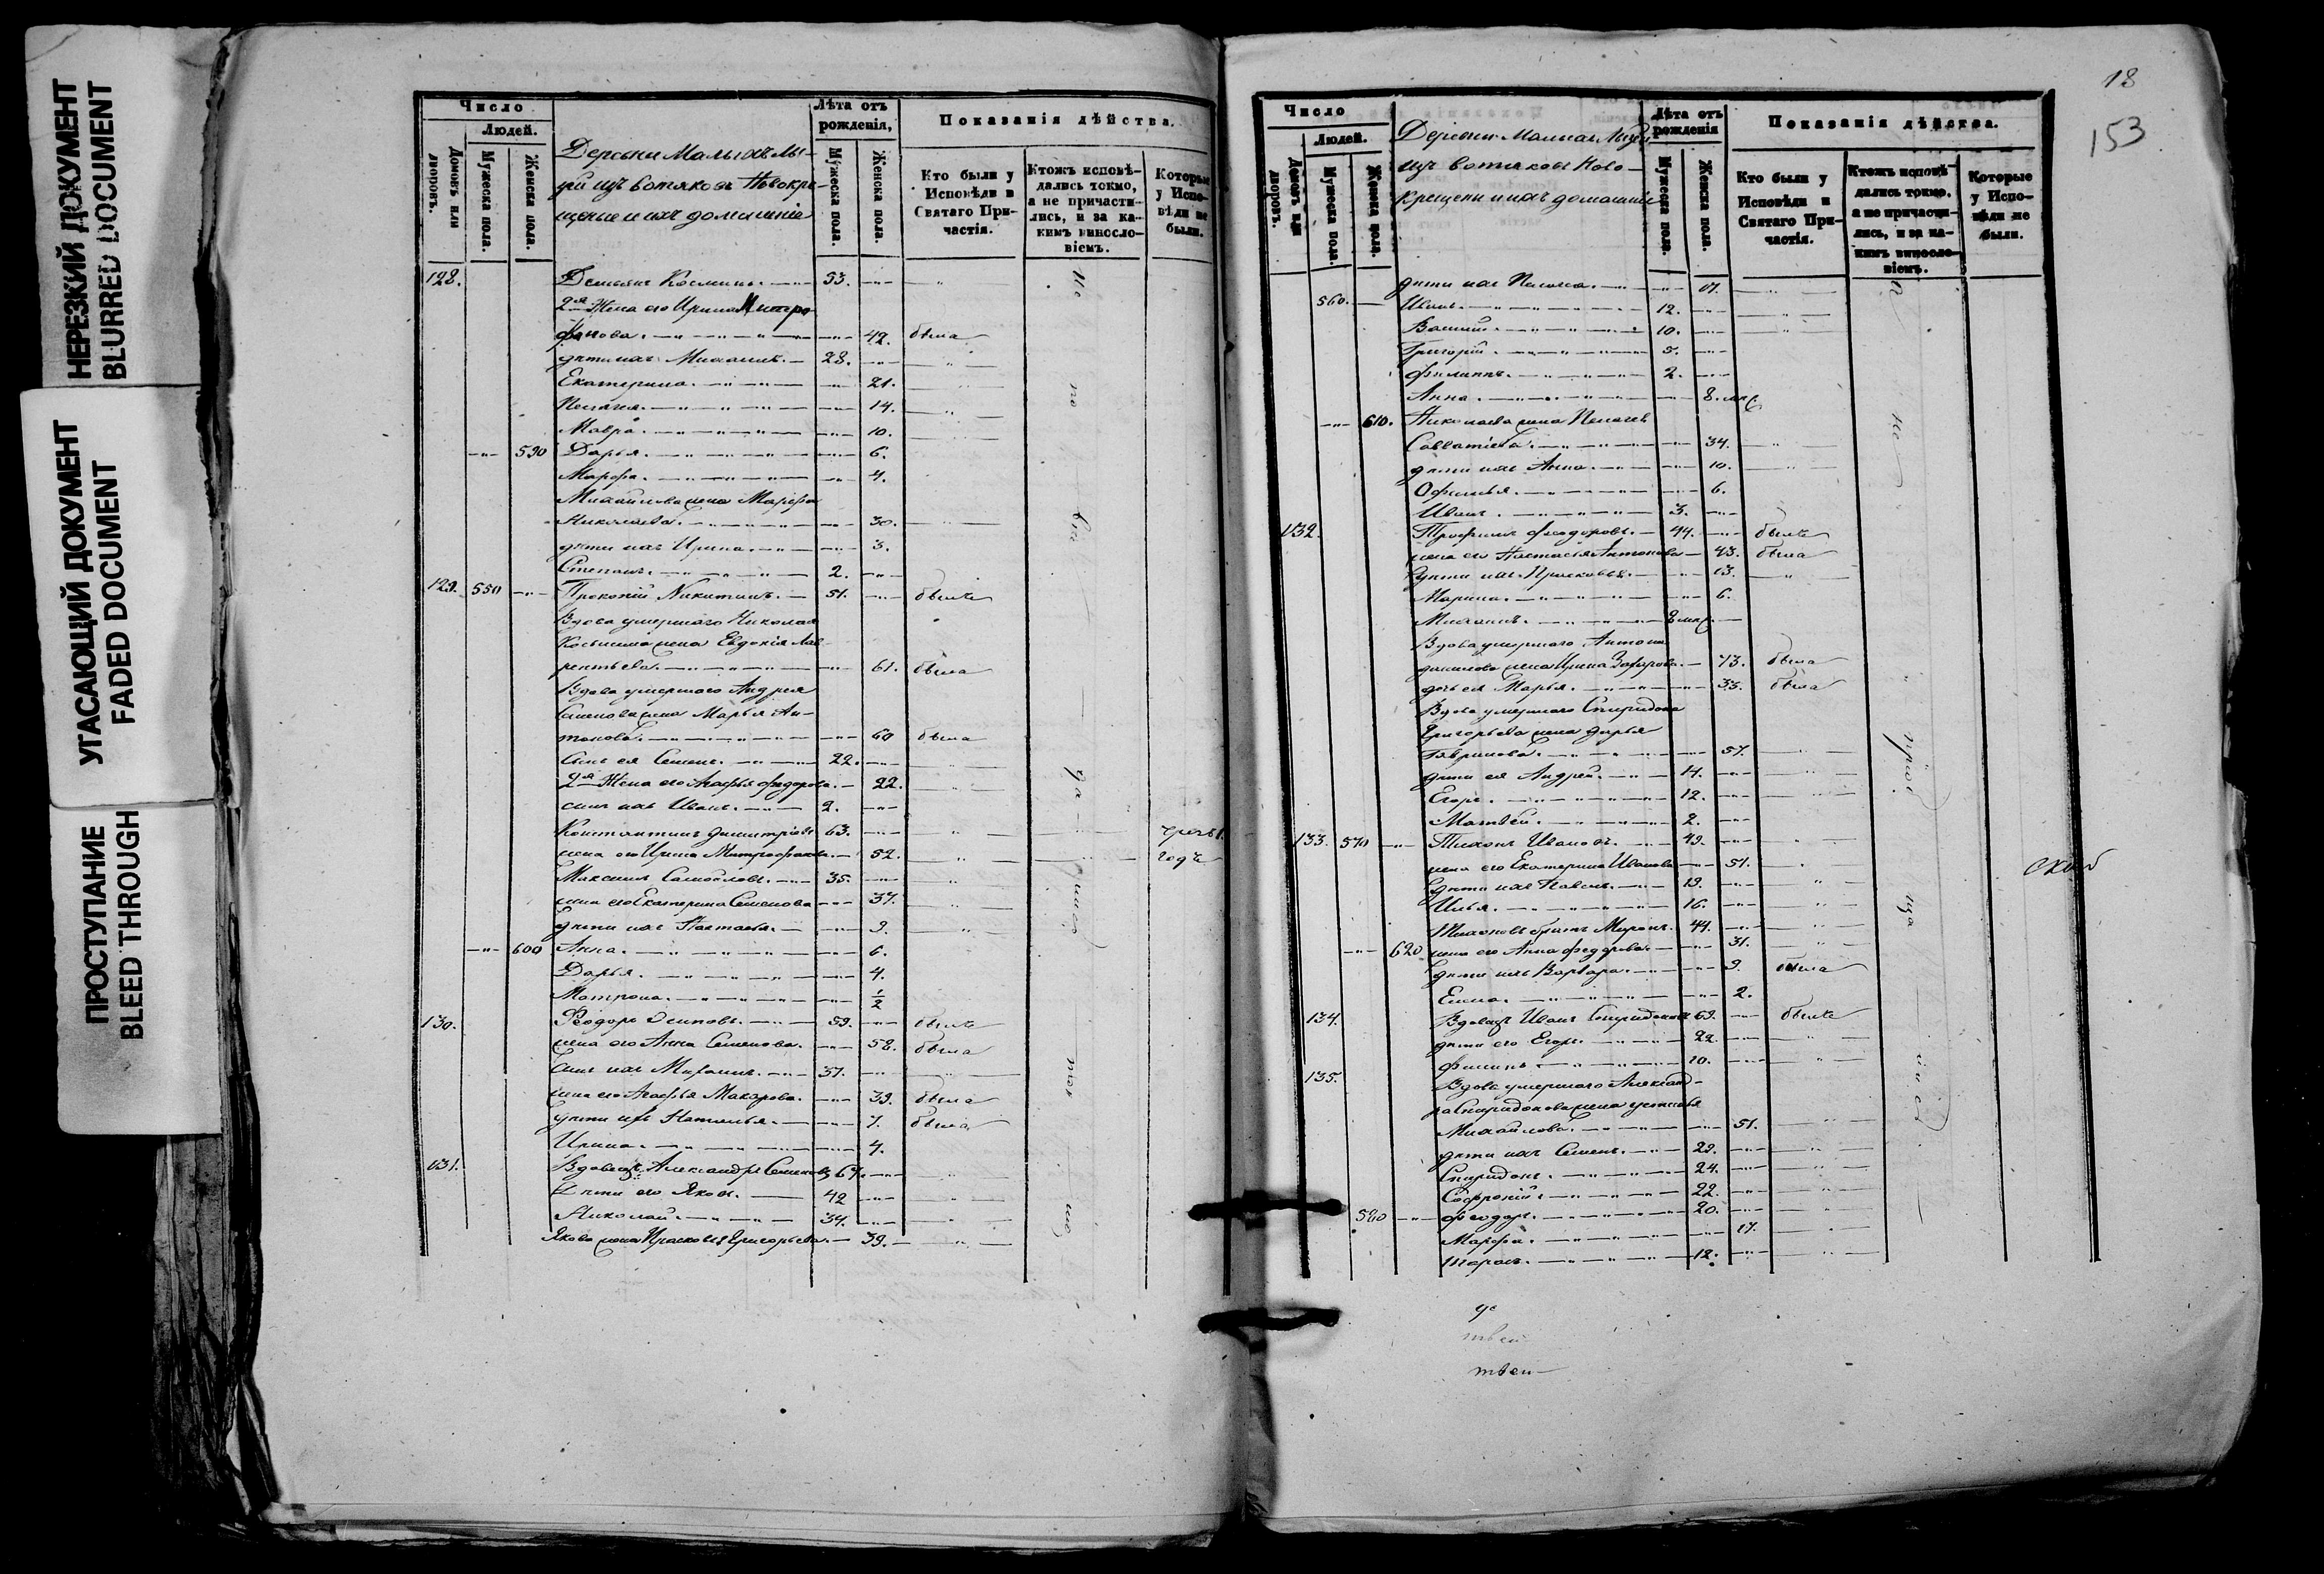 НЕРЕЗКИЙ ДОКУМЕНТ
BLURRED DOCUMENT
УГАСАЮЩИЙ ДОКУМЕНТ
FADED DOCUMENT
ПРОСТУПАНИЕ
BLEED THROUGH
Число
Людей.
Домовъ или дворовъ.
Мужеска пола.
Женска пола.
Деревни Малыхъ Лы-
зи изъ вотяковъ Новокре-
щеные и ихъ домашнiе
Лѣта отъ рожденiя,
Мужеска пола.
Женска пола.
Показанiя дѣйства.
Кто были у Исповѣди и Святаго При-частiя.
Ктожъ исповѣ-дались токмо, а не причасти-лись, и за ка-кимъ виносло-вiемъ.
Которые у Испо-вѣди не были.
128. Демьянъ Косминъ. 53.
2я Жена его Ирина Митро-
фанова. 42. была
дѣти ихъ Михаилъ. 28.
Екатерина. 21.
Пелагея. 14.
Мавра. 10.
590 Дарья. 6.
Марфа. 4.
Михайлова жена Марфа
Николаева. 30.
дѣти ихъ Ирина. 3.
Степанъ. 2.
129. 550 Прокопiй Никитинъ. 51. былъ
Вдова умершаго Николая
Косьмина жена Евдокiя Лав-
рентьева. 61. была
Вдова умершаго Андрея
Семенова жена Марья Ан-
тонова. 60 была
Сынъ ея Семенъ. 22.
2я Жена его Агафья Федорова. 22.
сынъ ихъ Иванъ. 2.
Константинъ Димитрiевъ 63. чрезъ 1.
жена его Ирина Митрофанова. 52. годъ
Максимъ Самойловъ. 35.
жена его Екатерина Семенова 37.
дѣти ихъ Настасья. 9.
600 Анна. 6.
Дарья. 4.
Матрона. 1/2
130. Феодоръ Осиповъ. 59. былъ
жена его Анна Семенова. 58. была
Сынъ ихъ Михаилъ. 37.
жена его Агафья Макарова. 39. была
дѣти ихъ Наталья. 7. была
Ирина. 4.
131. Вдовецъ Александръ Семеновъ 67.
Дѣти его Яковъ. 42
Николай. 34.
Якова жена Прасковья Григорьева. 39.
18
153
Число
Людей.
Домовъ или дворовъ.
Мужеска пола.
Женска пола.
Деревни Малыхъ Лызи
изъ вотяковъ Ново-
крещены и ихъ домашнiе
Лѣта отъ рожденiя
Мужеска пола.
Женска пола.
Показанiя дѣйства.
Кто были у Исповѣди и Святаго При-частiя.
Ктожъ исповѣ-дались токмо, а не причасти-лись, и за ка-кимъ винносло-вiемъ.
Которые у Испо-вѣди не были.
дѣти ихъ Пелагея. 17.
560. Иванъ. 12.
Василiй. 10.
Григорiй. 5.
Филиппъ. 2.
Анна. 8. мѣс.
610. Николаева жена Пелагея
Савватiева. 34.
дѣти ихъ Анна. 10.
Офимья. 6.
Иванъ. 3.
132. Трофимъ Феодоровъ. 44. былъ
жена его Настасья Антонова 43. была
дѣти ихъ Прасковья. 13.
Марина. 6.
Михаилъ. 8 мѣс.
Вдова умершаго Антона
Данилова жена Ирина Захарова. 73. была
дочь ея Марья. 33. была
Вдова умершаго Спиридона
Григорьева жена Дарья
Гаврилова. 57.
дѣти ея Андрей. 14.
Егоръ. 12.
Матвѣй. 2.
133. 570 Тихонъ Ивановъ. 49.
жена его Екатерина Иванова 51.
дѣти ихъ Павелъ. 19.
Илья. 16.
Тихоновъ братъ Миронъ. 44.
620 жена его Анна Федорова. 31.
дѣти ихъ Варвара. 9. была
Елена. 2.
134. Вдовецъ Иванъ Спиридоновъ 63. былъ
дѣти его Егоръ. 22.
Филипъ. 20.
135. Вдова умершаго Александ-
ра Спиридонова жена Устинья
Михайлова. 51.
дѣти ихъ Семенъ. 29.
Спиридонъ. 24.
Софронiй. 22.
580 Феодоръ. 20.
Марфа. 17.
Тарасъ. 12.